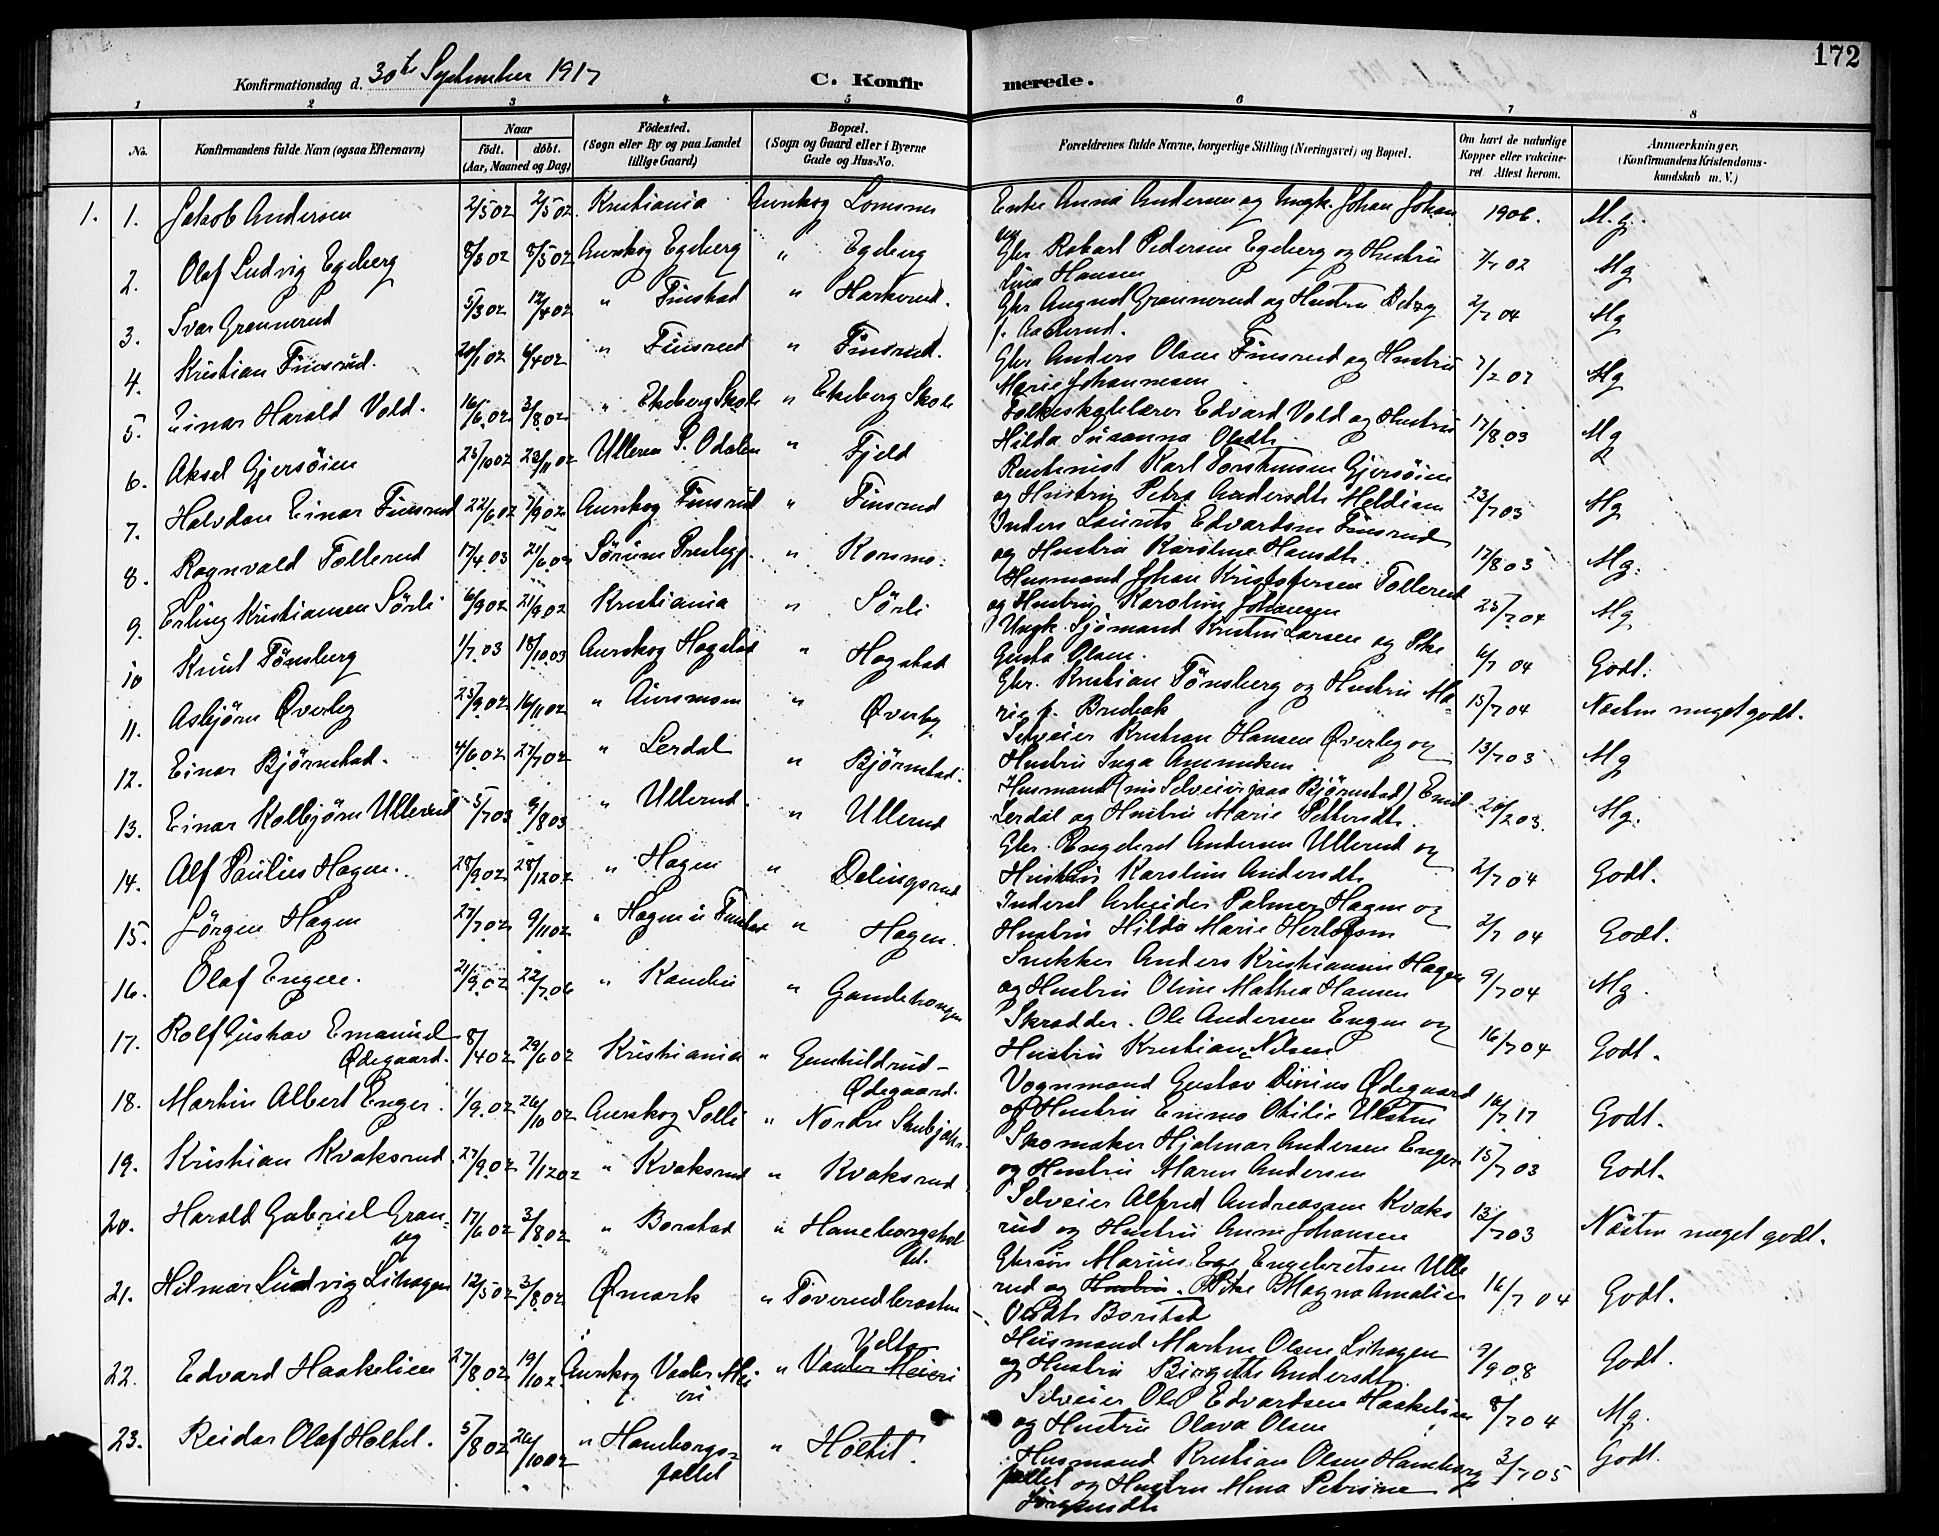 172
Konfirmationsdag d. 30te September 1917 C. Konfirmerede.
1 2 3 4 5 6 7 8
No. Konfirmandens fulde Navn (ogsaa Efternavn) Naar født. døbt. (Aar, Maaned og Dag) Fødested. (Sogn eller By og paa Landet tillige Gaard) Bopæl. (Sogn og Gaard eller i Byerne Gade og Hus-No. Forældrenes fulde Navne, borgerlige Stilling (Næringsvei) og Bopæl. Om havt de naturlige Kopper eller vaccineret. Attest herom. Anmærkninger. (Konfirmandens Kristendomskundskab m. V.)
1. 1. Jakob Andersen 2/5 02 2/5 02. Kristiania Aurskog Lomsnes Enke Anna Andersen og Ungk. Johan Johan 1906. M.g.
2. Olaf Ludvig Egeberg 8/3 02 8/5 02 Aurskog Egeberg " Egeberg Gbr Robart Pedersen Egeberg og Hustru Lina Hansen 7/7 02 Mg
3. Ivar Grønnerud 5/3 02 12/4 02 " Finstad " Harkerud. Gbr August Grønnerud og Hustru 2/7 04 Mg
4. Kristian Finsrud. 20/1 02 6/4 02 " Finsrud " Finsrud. Gbr Anders Olsen Finsrud og Hustru Marie Johannesen 7/2 07 Mg
5. Einar Harald Vold. 16/6 02 3/8 02 " Ekeberg Skole " Ekeberg Skole Folkeskolelærer Edvard Vold og Hustru Hilda Susanna Olsdt. 17/8 03 Mg
6. Aksel Gjersöien 25/10 02 23/11 02 Ulleren S. Odalen " Fjeld Rentenist Karl Torstensen Gjersöien og Hustru Petra Andersdt. Meldien 23/7 03 Mg
7. Halvdan Einar Finsrud 22/6 02 7/9 02 Aurskog Finsrud " Finsrud Inders Laurits Edvardsen Finsrud og Hustru Karoline Hansdt. 17/8 03 Mg.
8. Ragnvald Tollerud 17/4 03 21/6 03 Sørum Prestegj. " Korsmo. Husmand Johan Kristofersen Tollerud og Hustru Karoline Johansen 25/7 04 Mg
9. Erling Kristiansen Sörli 6/9 02 21/9 02 Kristiania " Sörli Ungk. Sjömand Kristen Larsen og Pike Gusta Olsen. 6/7 04 Godt.
10 Knut Tönsberg 1/7 03 18/10 03 Aurskog Hogstad " Hogstad Gbr. Kristian Tönsberg og Hustru Marie f. Bredvak 15/7 04 Næsten meget godt.
11. Asbjörn Øverby 25/9 02 16/11 02 " Aursmoen " Øverby Selveier Kristian Hansen Øverby og Hustru Inga Amundsen 13/7 03 Mg
12. Einar Björnstad. 4/6 02 27/7 02 " Lerdal " Björnstad. Husmand (nu Selveier paa Björnstad) Emil Lerdal og Hustru Marie Pettersdt. 20/2 03. Mg.
13. Einar Kolbjörn Ullerud 5/7 03 9/8 03 " Ullerud " Ullerud Gbr. Engebret Andersen Ullerud og Hustru Karolin Andersdt 2/7 04 Godt.
14. Alf Paulius Hagen. 28/9 02 28/12 02 " Hagen " Delingsrud Inderst Arbeider Palmer Hagen og Hustru Hilda Marie Herlofsen 2/7 04 Godt.
15. Jörgen Hagen 27/7 02 9/11 02 " Hagen u Finstad " Hagen. Snekker Anders Kristiansen Hagen og Hustru Oline Mathea Hansen 9/7 04 Mg.
16. Olaf Engen. 21/9 02 22/7 06 " Kambu " Gandehougen Skrædder. Ole Andersen Engen og Hustru Kristiane Nilsen 16/7 04 Godt.
17. Rolf Gustav Emanuel Ødegaard. 8/4 02 29/6 02 Kristiania " Gunhildrud-Ødegaard. Vognmand Gustav Ødegaard og Hustru Emma Otilie 16/7 17 Godt.
18. Martin Albert Enger. 1/9 02 26/10 02 Aurskog Solli " Nordre Skomaker Hjalmar Andersen Enger og Hustru Maren Andersen 15/7 03 Godt.
19. Kristian Kvaksrud. 27/9 02 7/12 02 " Kvaksrud " Kvaksrud Selveier Alfred Andreassen Kvaksrud og Hustru Anne Johansen 13/7 03 Næsten meget godt.
20. Harald Gabriel 17/6 02 3/8 02 " Borstad " Haneborgsholtet. Gbrsøn Marius Engebretsen Ullerud og Hustru. Pike Magna Amalie Borstad 16/7 04 Godt.
21. Hilmar Ludvig Lihagen 12/5 02 3/8 02 Ømark " Töverudbraaten Husmand Martin Olsen Lihagen og Hustru Birgitte Andersdt. 9/9 08 Godt.
22. Edvard Haakelien 27/8 02 19/10 02. Aurskog Vaaler Meieri " Velta Vaaler Meieri Selveier Ole Edvardsen Haakelien og Hustru Olava Olsen 8/7 04 Mg.
23. Reidar Olaf Holtet. 5/8 02 26/10 02 " Haneborgsfallet " Holtet. Husmand Kristian Olsen Haneborgfallet og Hustru Mina Petrine Jörgensdt. 3/7 05 Godt.